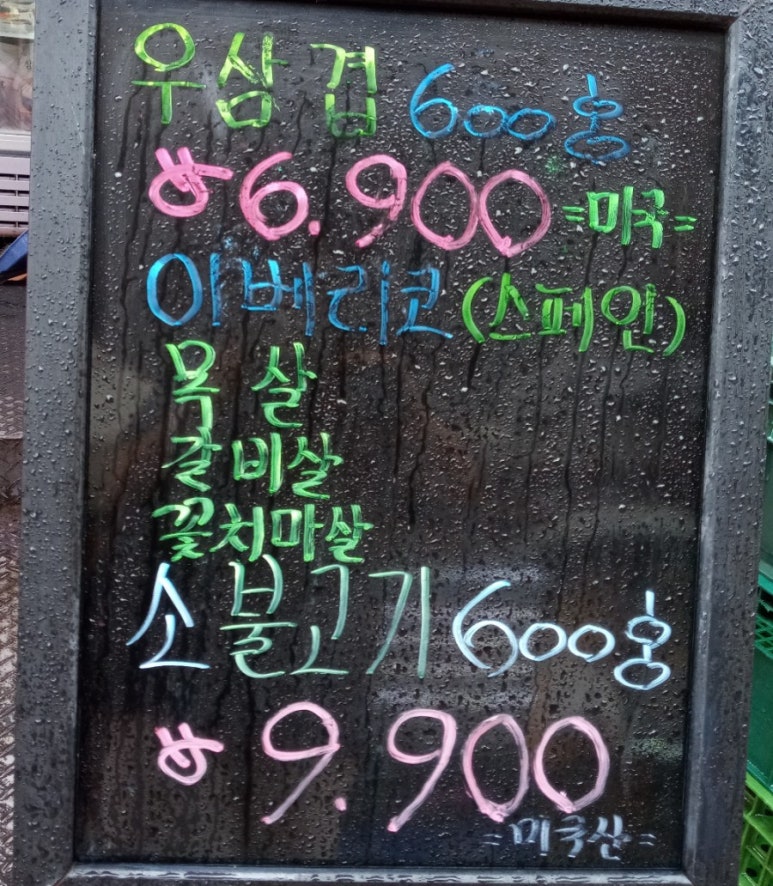 우삼겹 600g
₩6.900 =미국=
이베리코 (스페인)
목살
갈비살
꽃치마살
소불고기 600g
₩9.900
=미국산=